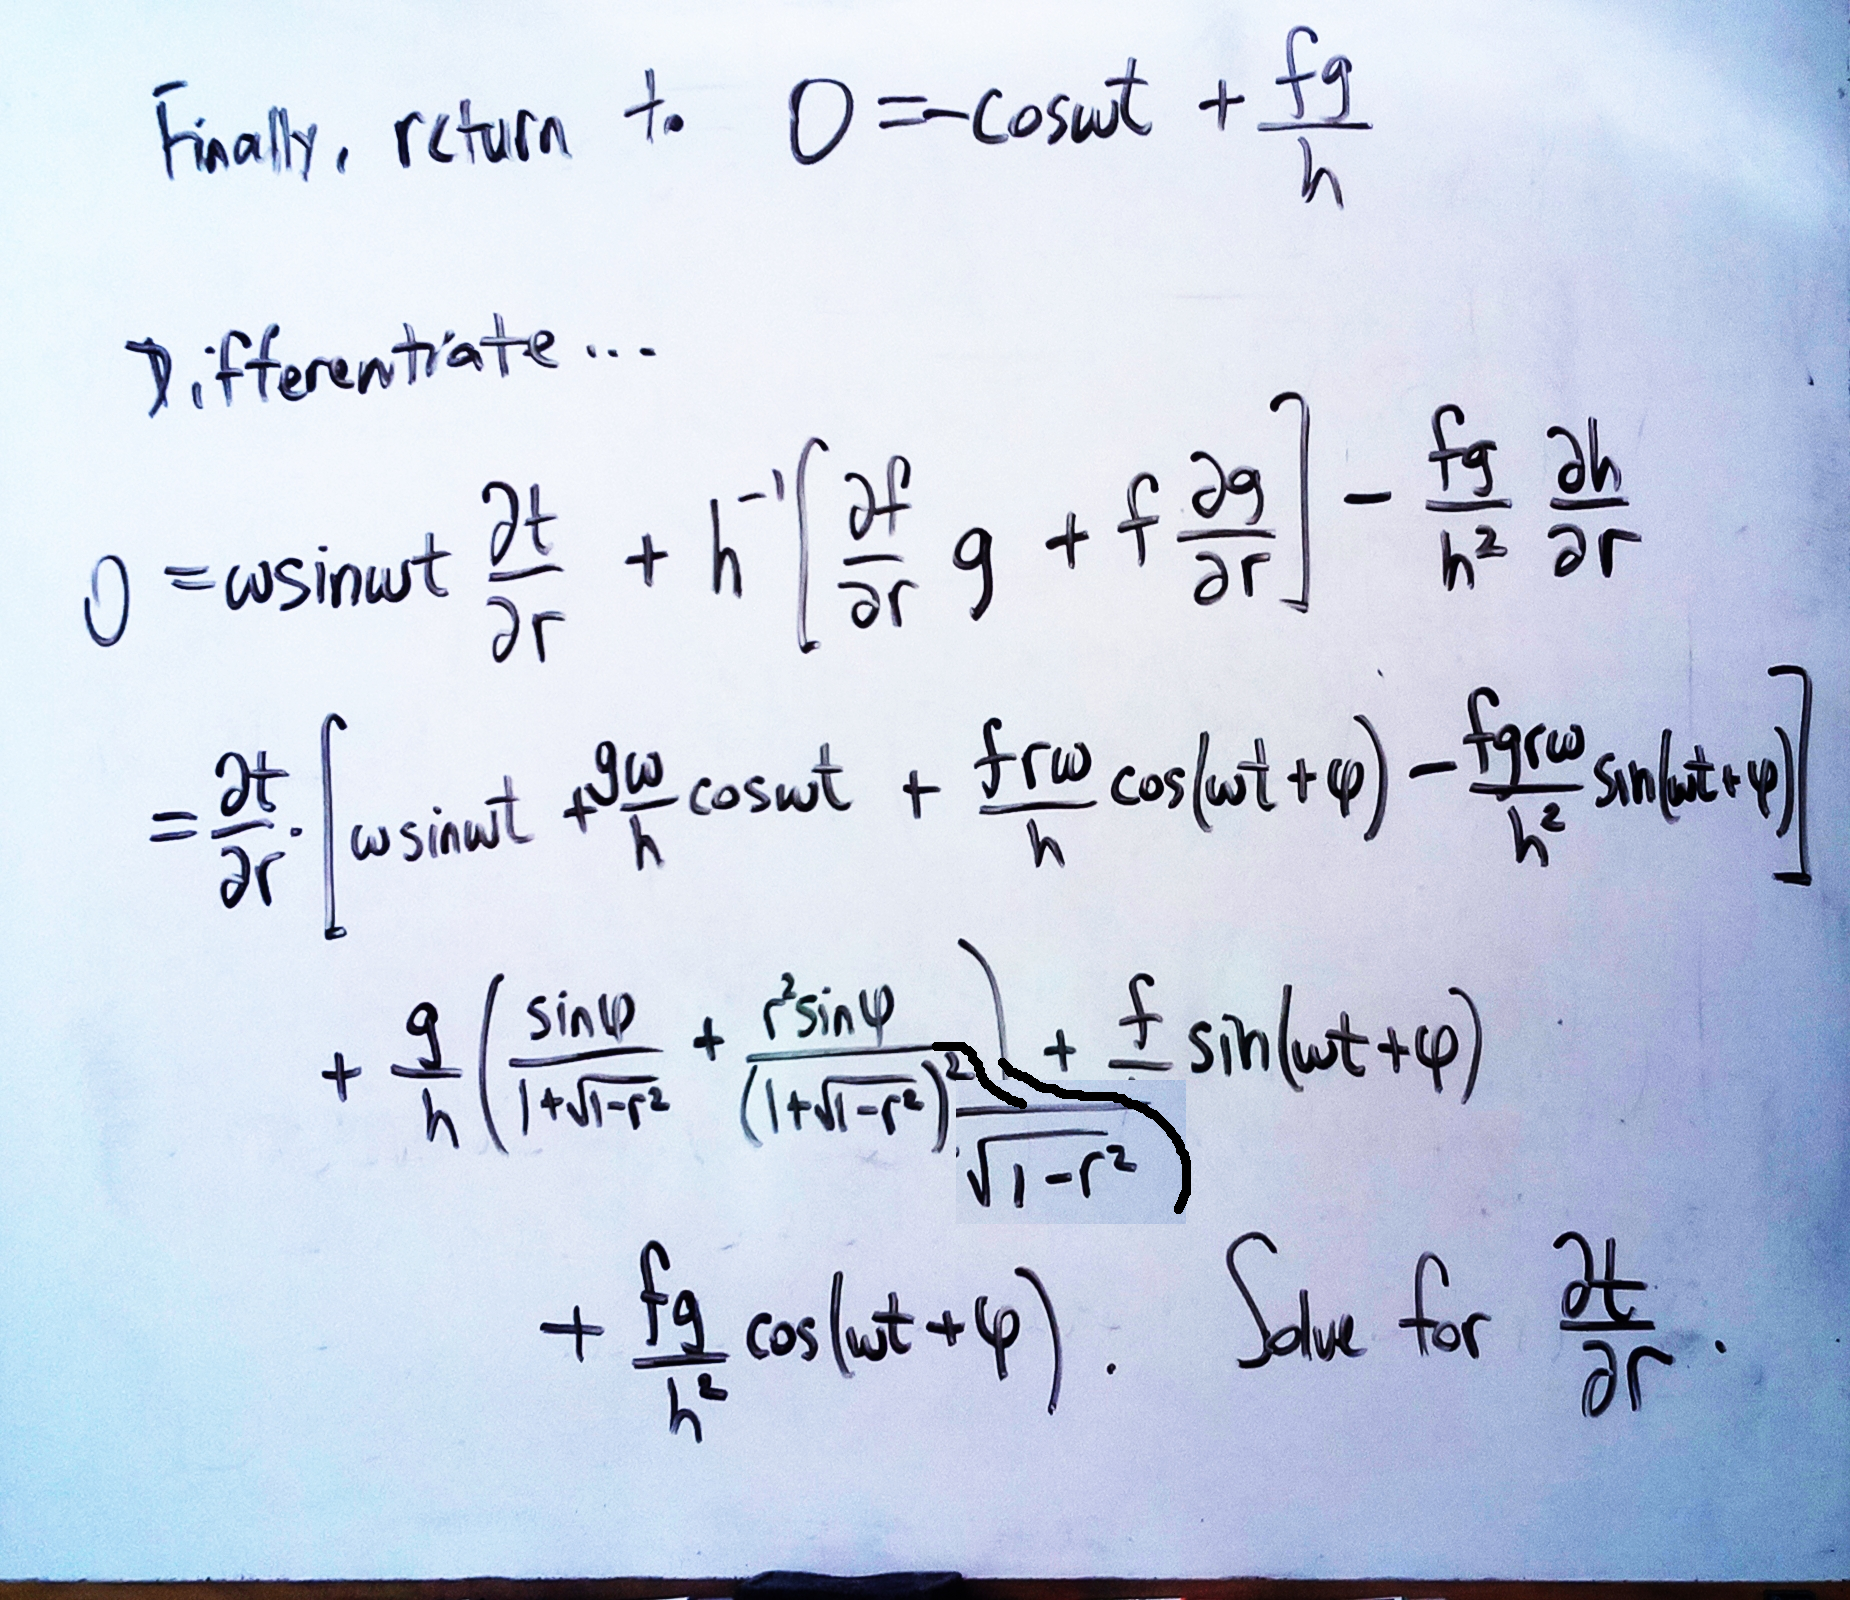 Finally, return to 0 = -cosωt + fg/h
Differentiate...
0 = ωsinωt ∂t/∂r + h⁻¹[∂f/∂r g + f ∂g/∂r] - fg/h² ∂h/∂r
= ∂t/∂r · [ωsinωt + gω/h cosωt + frω/h cos(ωt+φ) - fgrω/h² sin(ωt+φ)]
+ g/h (sinφ/(1+√(1-r²)) + r²sinφ/((1+√(1-r²))² √(1-r²))) + f/ sin(ωt+φ)
+ fg/h² cos(ωt+φ). Solve for ∂t/∂r.